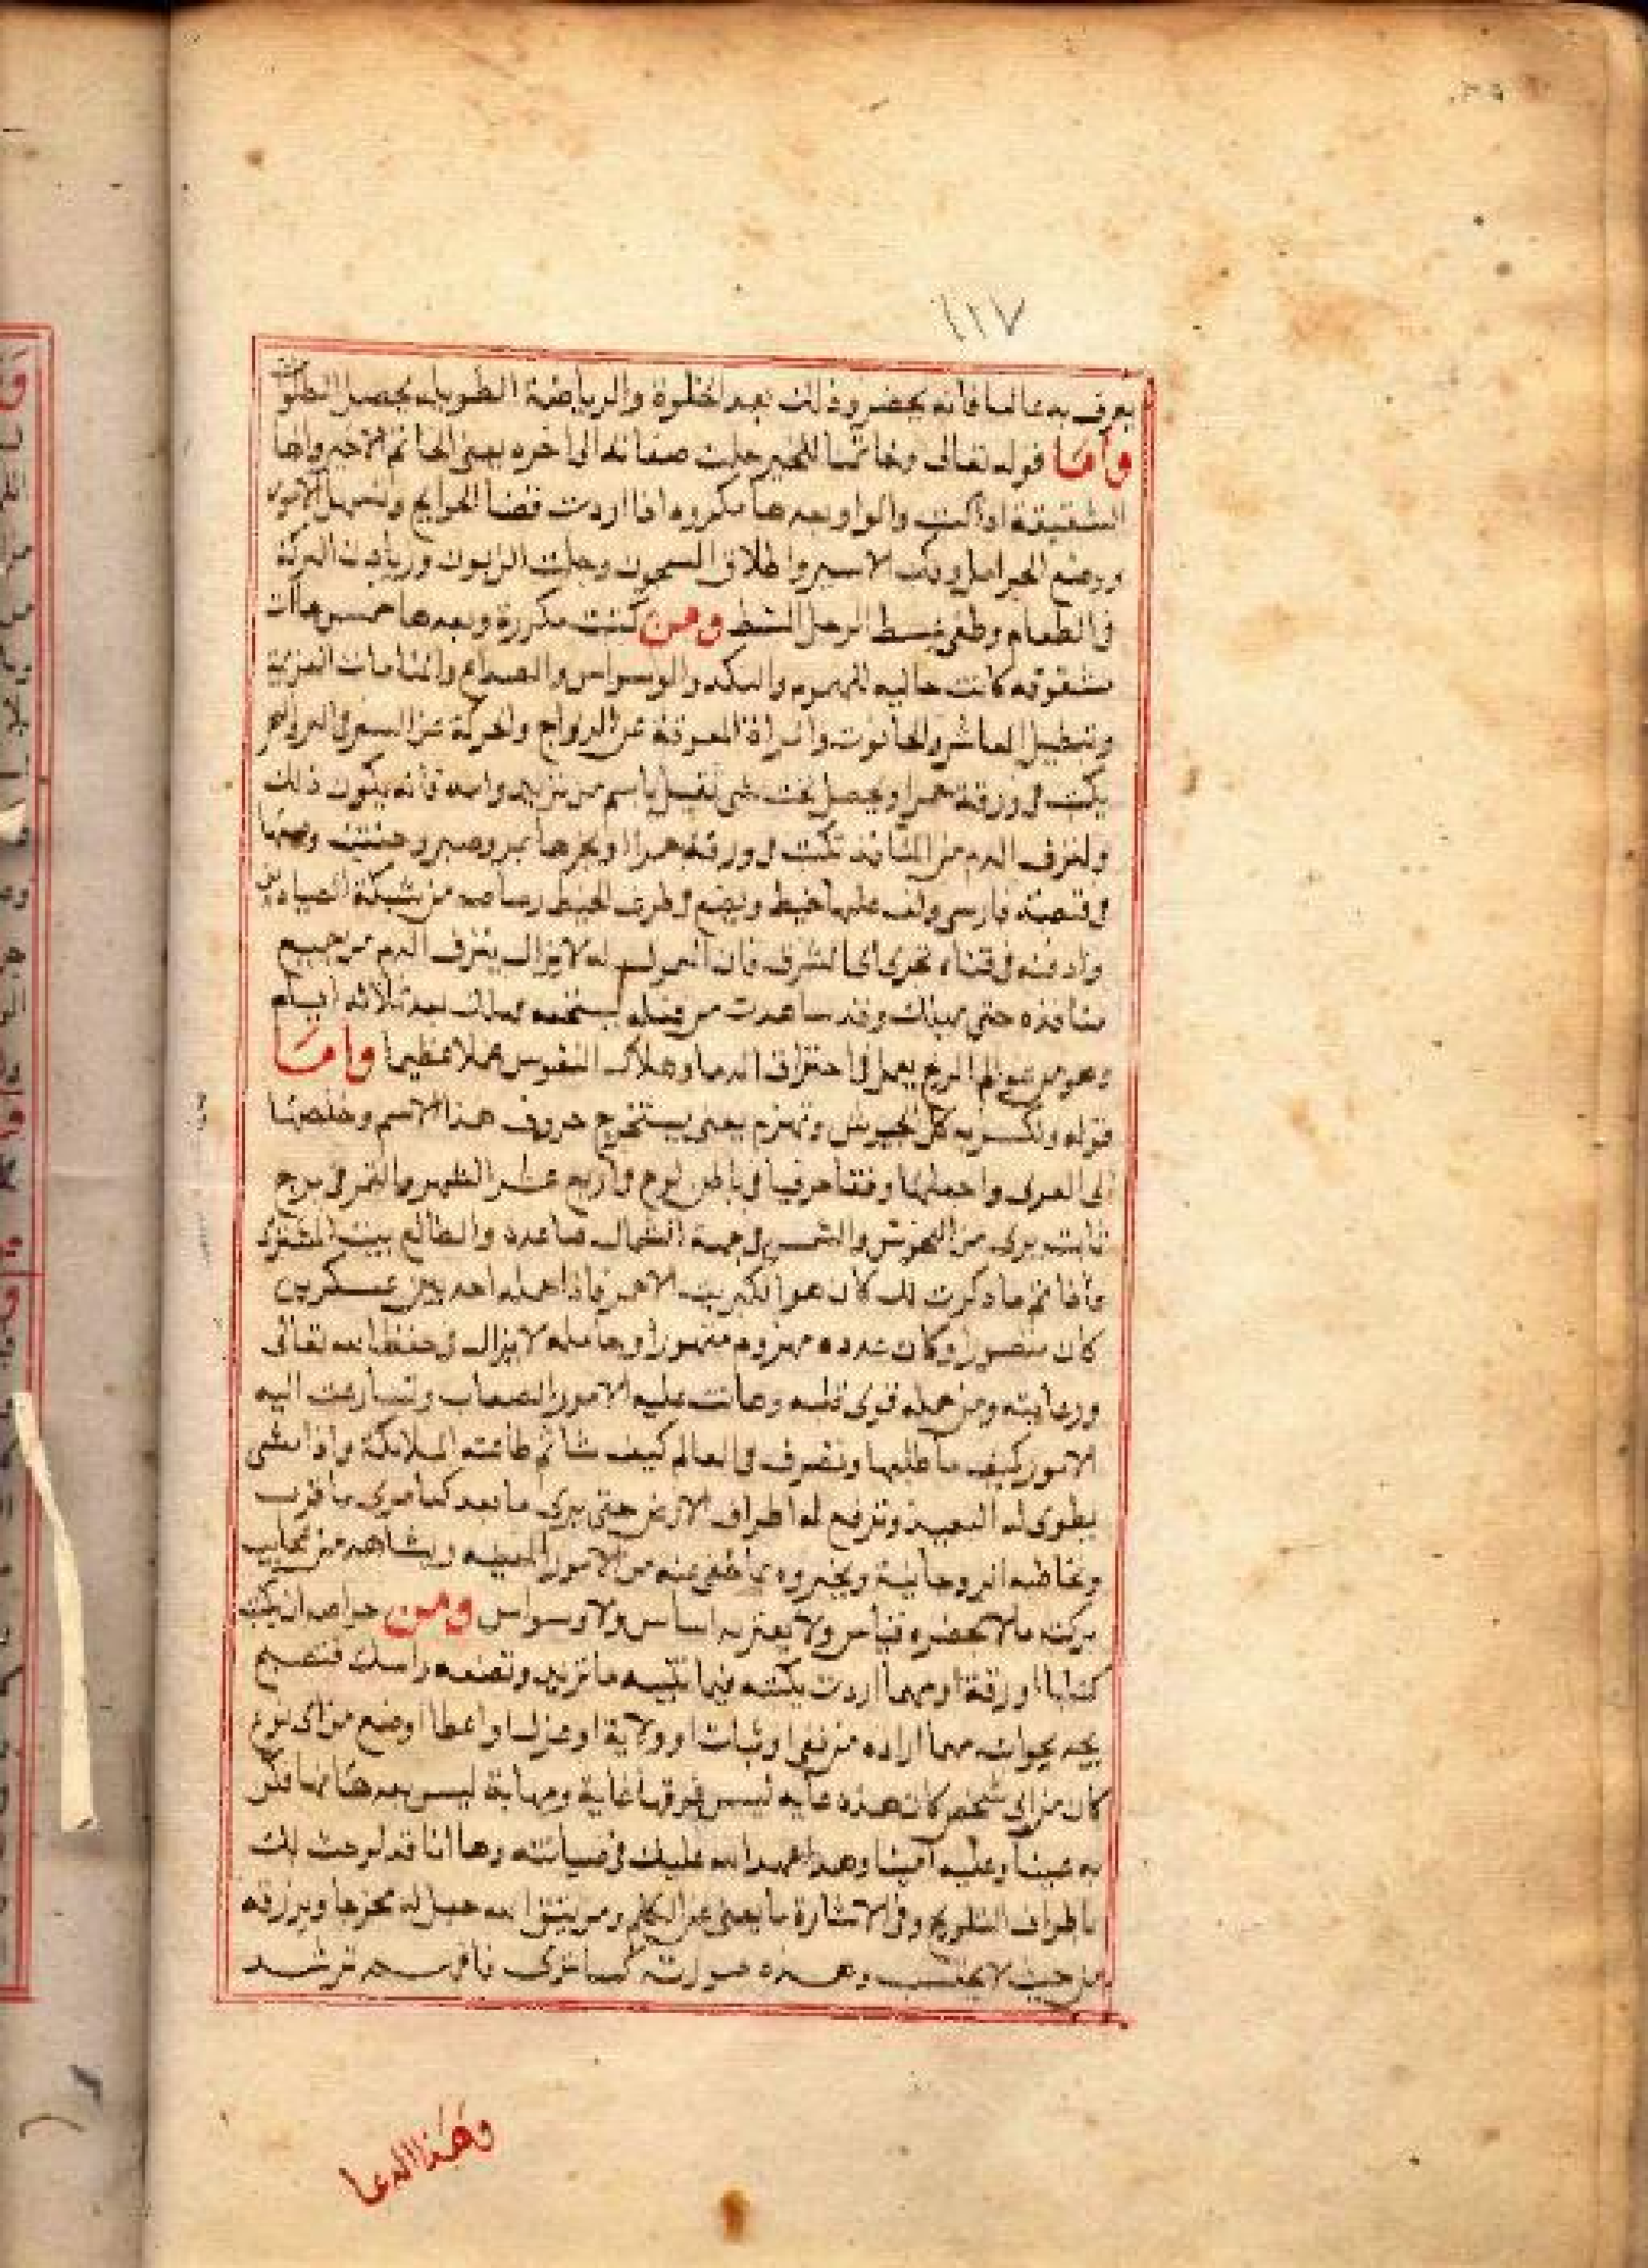 ٤١٧
يعرف به عالما فانه يحضر وذلك بعد الخلوة والرياضة الطويله يحصل المطلوب
واما قوله تعالى وخاتمها للخير جلت صفاته الى اخره يعنى الخاتم الاخير والها
الشقيقة اذا كتبت والواو بعدها مكرره اذا اردت قضا الحوايج وتسهيل الامور
ووضع الحوامل وفك الاسير واطلاق المسجون وجلب الزبون وزيادت البركة
فى الطعام ومن كتبت مكررة وبعدها خمس هاآت
مشقوقه كانت جالبه للهموم والنكد والوسواس والصداع والمنامات المزعجة
وتبطيل المعاش والحانوت والمراة المعوقة عن الزواج والحركة عن السفر فى البر والبحر
يكتب فى ورقة حمرا ويحصل تحت شى ثقيل باسم من تريد وامه فانه يكون ذلك
ولنزف الدم من المنافذ تكتب فى ورقة حمرا وبخرها بمر وصبر وحلتيت وضعها
فى قصبة فارسى ولف عليها خيط ويضع فى طرف الخيط رصاصه من شبكة الصيادين
وادفنه فى قناه تجرى الى الشرق فان المعمول له لايزال ينزف الدم من جميع
منافذه حتى يهلك وقد ساعدت من فعله ليستحقه فمات بعد ثلاثة ايام
وهو من عوالم المريخ يعمل فى احتراق الدما وهلاك النفوس عملا عظيما واما
قوله وتكسر به كل الجيوش وتهزم يعنى يستخرج حروف هذا الاسم وخلصها
الى العربى واجعلها وفقا حرفيا فى باطن لوح فى اربع عشر الشهر والقمر فى برج
ثابت برى من النحوس والشمس فى جهة الشمال صاعدة والطالع ببيت المشترى
واذا تم ماذكرت لك كان هو الكبريت الاحمر فاذا حمله احد بين عسكرين
كان منصورا وكان عدده مهزوم مقهورا وحامله لايزال فى حفظ الله تعالى
ورعايته ومن حمله قوى قلبه وهانت عليه الامور الصعاب وتسارعت اليه
الامور كيف ماطلبها وتصرف فى العالم كيف شا ثم طاعته الملائكة واذا مشى
يطوى له البعيد وترفع له اطراف الارض حتى يرى مابعد كما يرى ماقرب
وتخاطبه الروحانية ويخبروه بما خفى عنه من الامور المغيبه ويشاهد من عجايب
بركته مالا يحضره قياس ولا يعتريه اساس ولا وسواس ومن خواصه ان يكتب
كتابا او رقعة او مهما اردت يكتب فيها بنيه ماتريد وتضعه راسك فتصبح
تجد بجوابه مهما اراده من نفى او ثبات او ولاية او عزل او اعطا او منع من اى نوع
كان من اى شخص كان هذه غايه ليس فوقها غاية ونهاية ليس بعدها نهاية فكن
به ضنينا وعليه امينا وهذا عهد الله عليك فى صيانته وها انا قد لوحت لك
باطراف التلويح وفى الاشارة مايغنى عن الكلام ومن يتق الله يجعل له مخرجا ويرزقه
من حيث لا يحتسب وهذه صورته كما ترى فافهم ترشد
وهذا الدعا